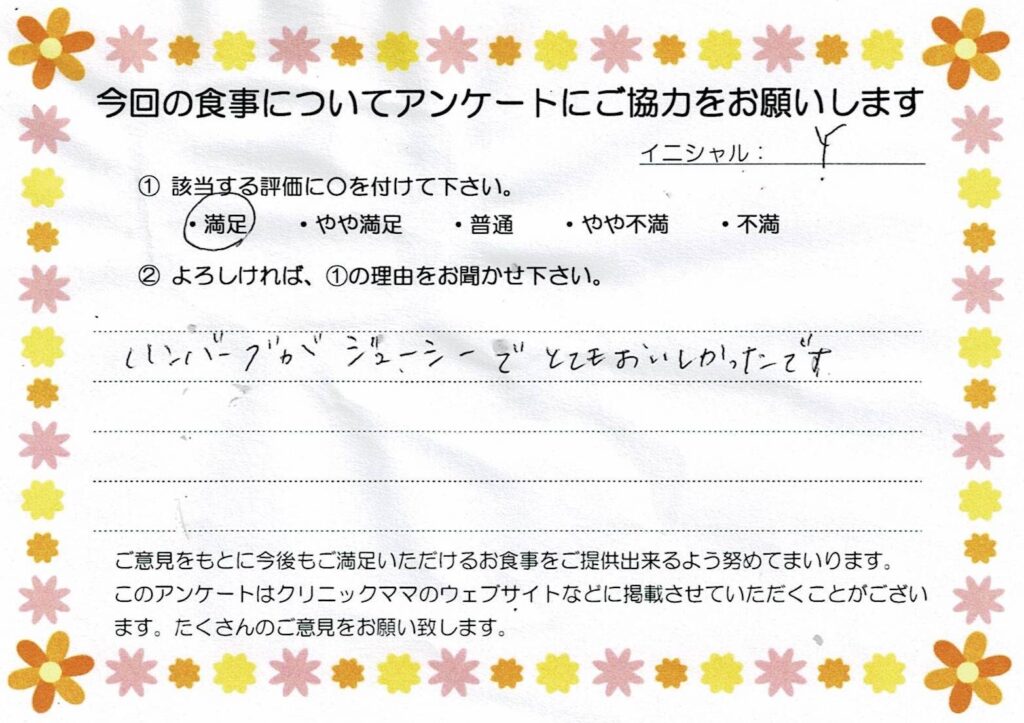 今回の食事についてアンケートにご協力をお願いします
イニシャル： Y
① 該当する評価に〇を付けて下さい。
・満足 ・やや満足 ・普通 ・やや不満 ・不満
② よろしければ、①の理由をお聞かせ下さい。
ハンバーグがジューシーでとてもおいしかったです
ご意見をもとに今後もご満足いただけるお食事をご提供出来るよう努めてまいります。
このアンケートはクリニックママのウェブサイトなどに掲載させていただくことがござい
ます。たくさんのご意見をお願い致します。